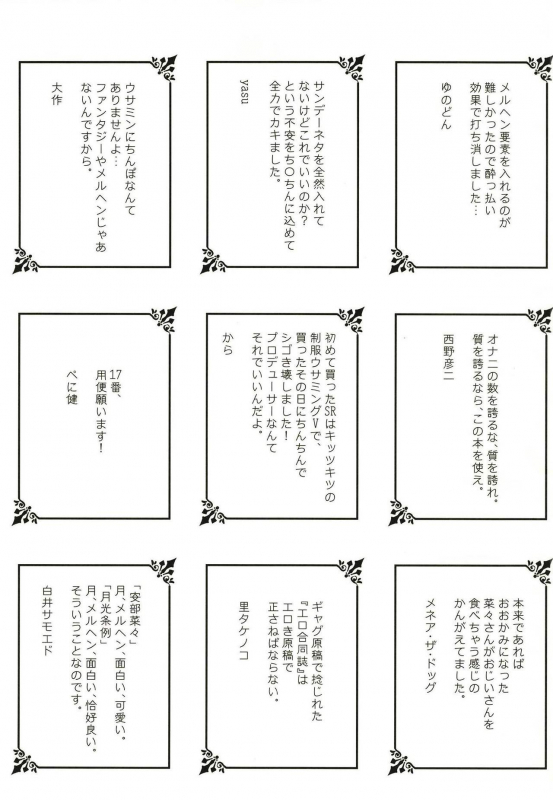 メルヘン要素を入れるのが
難しかったので酔っ払い
効果で打ち消しました…
ゆのどん
サンデーネタを全然入れて
ないけどこれでいいのか？
という不安をち〇ちんに込めて
全力でカキました。
yasu
ウサミンにちんぽなんて
ありませんよ…
ファンタジーやメルヘンじゃあ
ないんですから。
大作
オナニの数を誇るな、質を誇れ。
質を誇るなら、この本を使え。
西野彦二
初めて買ったSRはキッツキツの
制服ウサミングVで、
買ったその日にちんちんで
シゴき壊しました！
プロデューサーなんて
それでいいんだよ。
から
17番、
用便願います！
べに健
本来であれば
おおかみになった
菜々さんがおじいさんを
食べちゃう感じの
かんがえてました。
メネア・ザ・ドッグ
ギャグ原稿で捻じれた
『エロ合同誌』は
エロき原稿で
正さねばならない。
里タケノコ
「安部菜々」
月、メルヘン、面白い、可愛い。
「月光条例」
月、メルヘン、面白い、恰好良い。
そういうことなのです。
白井サモエド